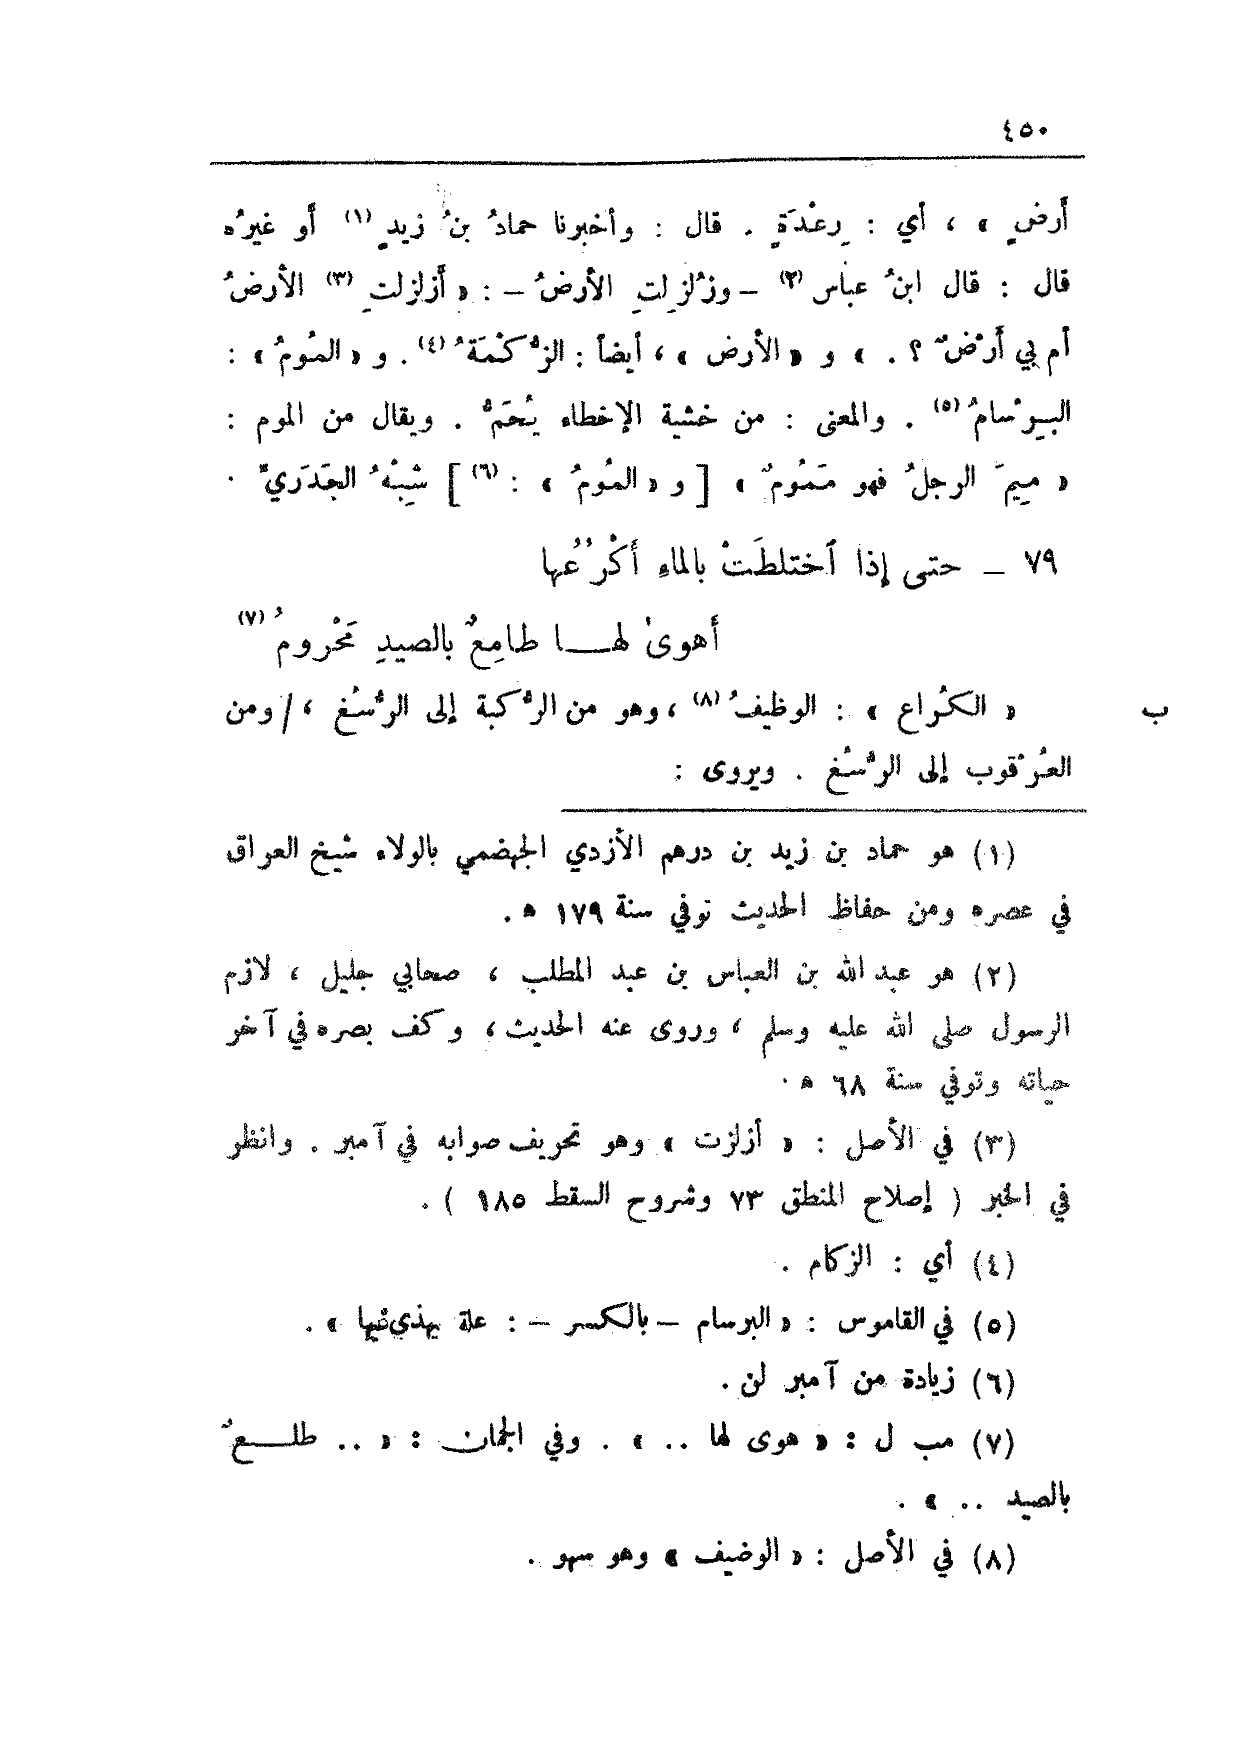 ٤٥٠
أرضٍ » ، أي : رِعْدَةٍ . قال : وأخبرنا حمادُ بنُ زيدٍ (١) أو غيرُه
قال : قال ابنُ عباس (٢) – وزُلزِلتِ الأرضُ – : « أزلزلتِ (٣) الأرضُ
أم بي أَرْضٌ ؟ . » و « الأرض » ، أيضاً : الزُّكْمَةُ (٤) . و « المُومُ » :
البِرْسامُ (٥) . والمعنى : من خشية الإخطاء يُحَمُّ . ويقال من الموم :
« مِيمَ الرجلُ فهو مَمُومٌ » [ و « المُومُ » : (٦) ] شِبْهُ الجَدَريِّ .
٧٩ – حتى إذا ٱختلطَتْ بالماءِ أَكْرُعُها
أهوىٰ لهـــا طامِعٌ بالصيدِ مَحْرومُ (٧)
« الكُراع » : الوظيفُ (٨) ، وهو من الرُّكبة إلى الرُّسْغ ، / ومن
ب
العُرْقوب إلى الرُّسْغ . ويروى :
(١) هو حماد بن زيد بن درهم الأزدي الجهضمي بالولاء شيخ العراق
في عصره ومن حفاظ الحديث توفي سنة ١٧٩ ه .
(٢) هو عبد الله بن العباس بن عبد المطلب ، صحابي جليل ، لازم
الرسول صلى الله عليه وسلم ، وروى عنه الحديث ، وكف بصره في آخر
حياته وتوفي سنة ٦٨ ه .
(٣) في الأصل : « أزلزت » وهو تحريف صوابه في آمبر . وانظر
في الخبر ( إصلاح المنطق ٧٣ وشروح السقط ١٨٥ ) .
(٤) أي : الزكام .
(٥) في القاموس : « البرسام – بالكسر – : علة يهذى فيها » .
(٦) زيادة من آمبر لن .
(٧) مب ل : « هوى لها .. » . وفي الجمان : « .. طلـــعٌ
بالصيد .. » .
(٨) في الأصل : « الوضيف » وهو سهو .